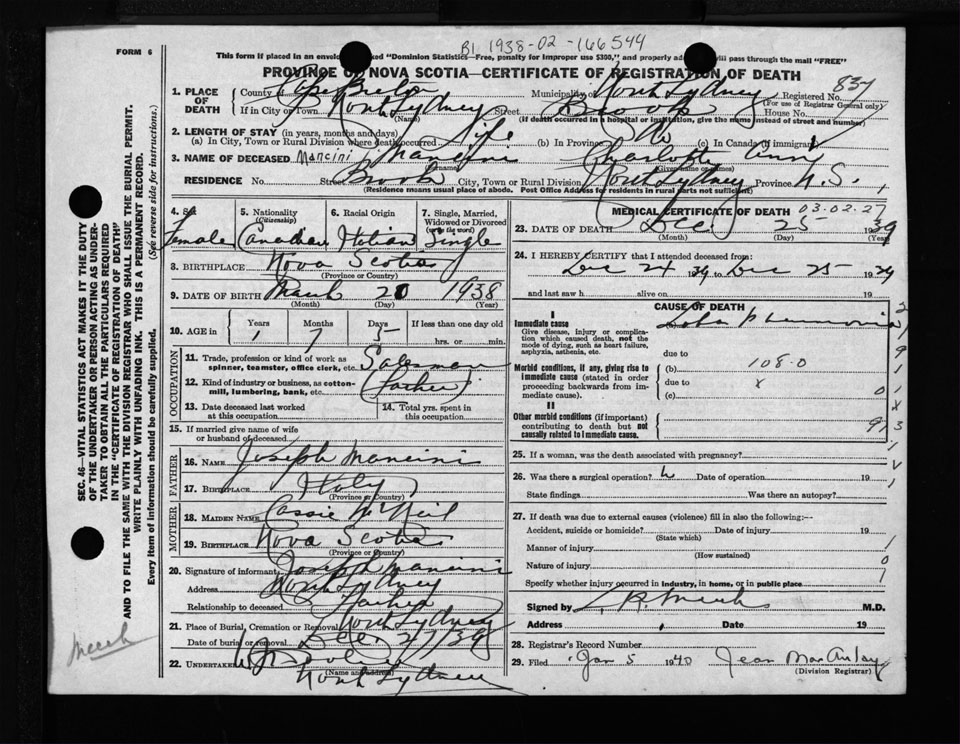 B1 1938-02-166544
FORM 6
This form if placed in an envelope marked "Dominion Statistics—Free, penalty for improper use $300," and properly addressed will pass through the mail "FREE"
PROVINCE OF NOVA SCOTIA—CERTIFICATE OF REGISTRATION OF DEATH
1. PLACE OF DEATH County of Cape Breton Municipality of North Sydney Registered No. 837
(For use of Registrar General only)
If in City or Town North Sydney Street Brook House No.
(Name) (If death occurred in a hospital or institution, give the name instead of street and number)
2. LENGTH OF STAY (in years, months and days)
(a) In City, Town or Rural Division where death occurred Life (b) In Province (c) In Canada if immigrant
3. NAME OF DECEASED Mancini Mancini Charlotte Ann
(Surname) (Given name or names)
RESIDENCE No. Street Brook City, Town or Rural Division North Sydney Province N.S.
(Residence means usual place of abode. Post Office Address for residents in rural parts not sufficient)
4. Sex Female
5. Nationality (Citizenship) Canadian
6. Racial Origin Italian
7. Single, Married, Widowed or Divorced (write the word) Single
8. BIRTHPLACE Nova Scotia
(Province or Country)
9. DATE OF BIRTH March 20 1938
(Month) (Day) (Year)
10. AGE in Years Months Days If less than one day old
1 7 5 hrs. or min.
OCCUPATION
11. Trade, profession or kind of work as spinner, teamster, office clerk, etc. Salesman
12. Kind of industry or business, as cotton-mill, lumbering, bank, etc. (Father)
13. Date deceased last worked at this occupation
14. Total yrs. spent in this occupation
15. If married give name of wife or husband of deceased
FATHER
16. NAME Joseph Mancini
17. BIRTHPLACE Italy
(Province or Country)
MOTHER
18. MAIDEN NAME Cassie McNeil
19. BIRTHPLACE Nova Scotia
(Province or Country)
20. Signature of informant Joseph Mancini
Address North Sydney
Relationship to deceased Father
21. Place of Burial, Cremation or Removal North Sydney
Date of burial or removal Dec 27/39
22. UNDERTAKER
(Name and address)
North Sydney
MEDICAL CERTIFICATE OF DEATH 03.02.27
23. DATE OF DEATH Dec 25 1939
(Month) (Day) (Year)
24. I HEREBY CERTIFY that I attended deceased from:
Dec 24 1939 to Dec 25 1939
and last saw h alive on 19
CAUSE OF DEATH
I
Immediate cause
Give disease, injury or complication which caused death, not the mode of dying, such as heart failure, asphyxia, asthenia, etc.
(a) Lobar Pneumonia
due to
Morbid conditions, if any, giving rise to immediate cause (stated in order proceeding backwards from immediate cause).
(b) 108.0
due to x
(c)
II
Other morbid conditions (if important) contributing to death but not causally related to immediate cause.
25. If a woman, was the death associated with pregnancy?
26. Was there a surgical operation? Date of operation 19
State findings Was there an autopsy?
27. If death was due to external causes (violence) fill in also the following:—
Accident, suicide or homicide? Date of injury 19
(State which)
Manner of injury
(How sustained)
Nature of injury
Specify whether injury occurred in industry, in home, or in public place
Signed by M.D.
Address Date 19
28. Registrar's Record Number
29. Filed Jan 5 1940 Jean MacAulay
(Division Registrar)
SEC. 46—VITAL STATISTICS ACT MAKES IT THE DUTY
OF THE UNDERTAKER OR PERSON ACTING AS UNDER-
TAKER TO OBTAIN ALL THE PARTICULARS REQUIRED
IN THE "CERTIFICATE OF REGISTRATION OF DEATH"
AND TO FILE THE SAME WITH THE DIVISION REGISTRAR WHO SHALL ISSUE THE BURIAL PERMIT.
WRITE PLAINLY WITH UNFADING INK. THIS IS A PERMANENT RECORD.
Every item of information should be carefully supplied. (See reverse side for instructions.)